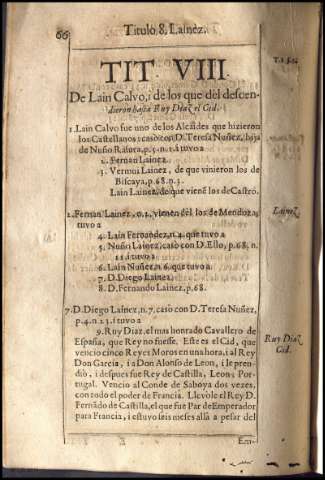 66
Titulo 8. Lainez.
TIT. VIII.
De Lain Calvo, i de los que del descen-
dieron hasta Ruy Diaz el Cid.
1. Lain Calvo fue uno de los Alcaldes que hizieron
los Castellanos; casò con D. Teresa Nuñez, hija
de Nuño Rasura, p. 3. n. 1. i tuvo a
2. Fernan Lainez.
3. Vermui Lainez, de que vinieron los de
Biscaya, p. 68. n. 3.
Lain Lainez, de que vienē los de Castro.
2. Fernan Lainez, n. 2. vienen dèl los de Mendoza,
tuvo a
4. Lain Fernandez, n. 4. que tuvo a
5. Nuño Lainez, casò con D. Ello, p. 68. n.
11. i tuvo a
6. Lain Nuñez, n. 6. que tuvo a
7. D. Diego Lainez.
8. D. Fernando Lainez, p. 68.
7. D. Diego Laínez, n. 7. casò con D. Teresa Nuñez,
p. 4. n. 23. i tuvo a
9. Ruy Diaz, el mas honrado Cavallero de
España, que Rey no fuesse. Este es el Cid, que
vencio cinco Reyes Moros en una hora, i al Rey
Don Garcia, i a Don Alonso de Leon, i le pren-
diò, i despues fue Rey de Castilla, Leon, i Por-
tugal. Vencio al Conde de Saboya dos vezes,
con todo el poder de Francia. Llevole el Rey D.
Fernādo de Castilla, el que fue Par de Emperador
para Francia, i estuvo seis meses allà a pesar del
Em-
Lainez.
Ruy Diaz
Cid.